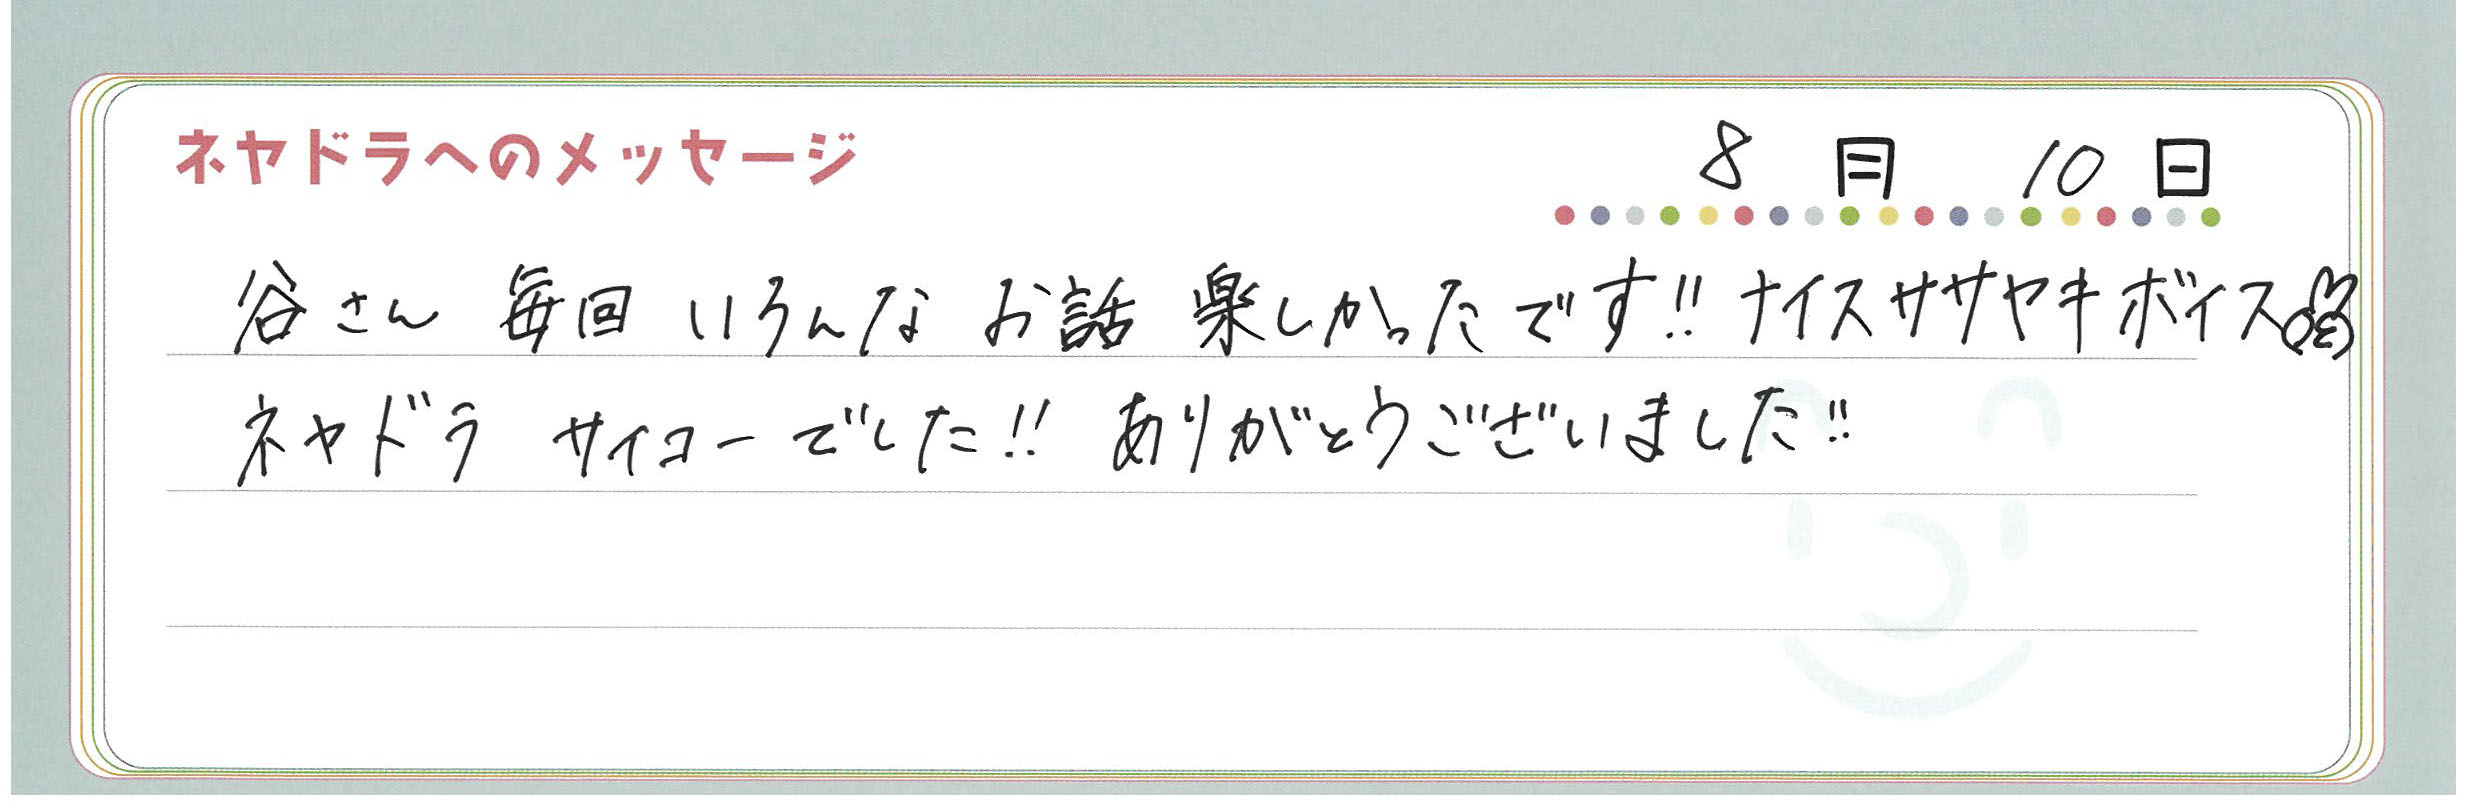 ネヤドラへのメッセージ
8月10日
谷さん 毎回 いろんな お話 楽しかったです!! ナイスササヤキボイス
ネヤドラ サイコーでした!! ありがとうございました!!